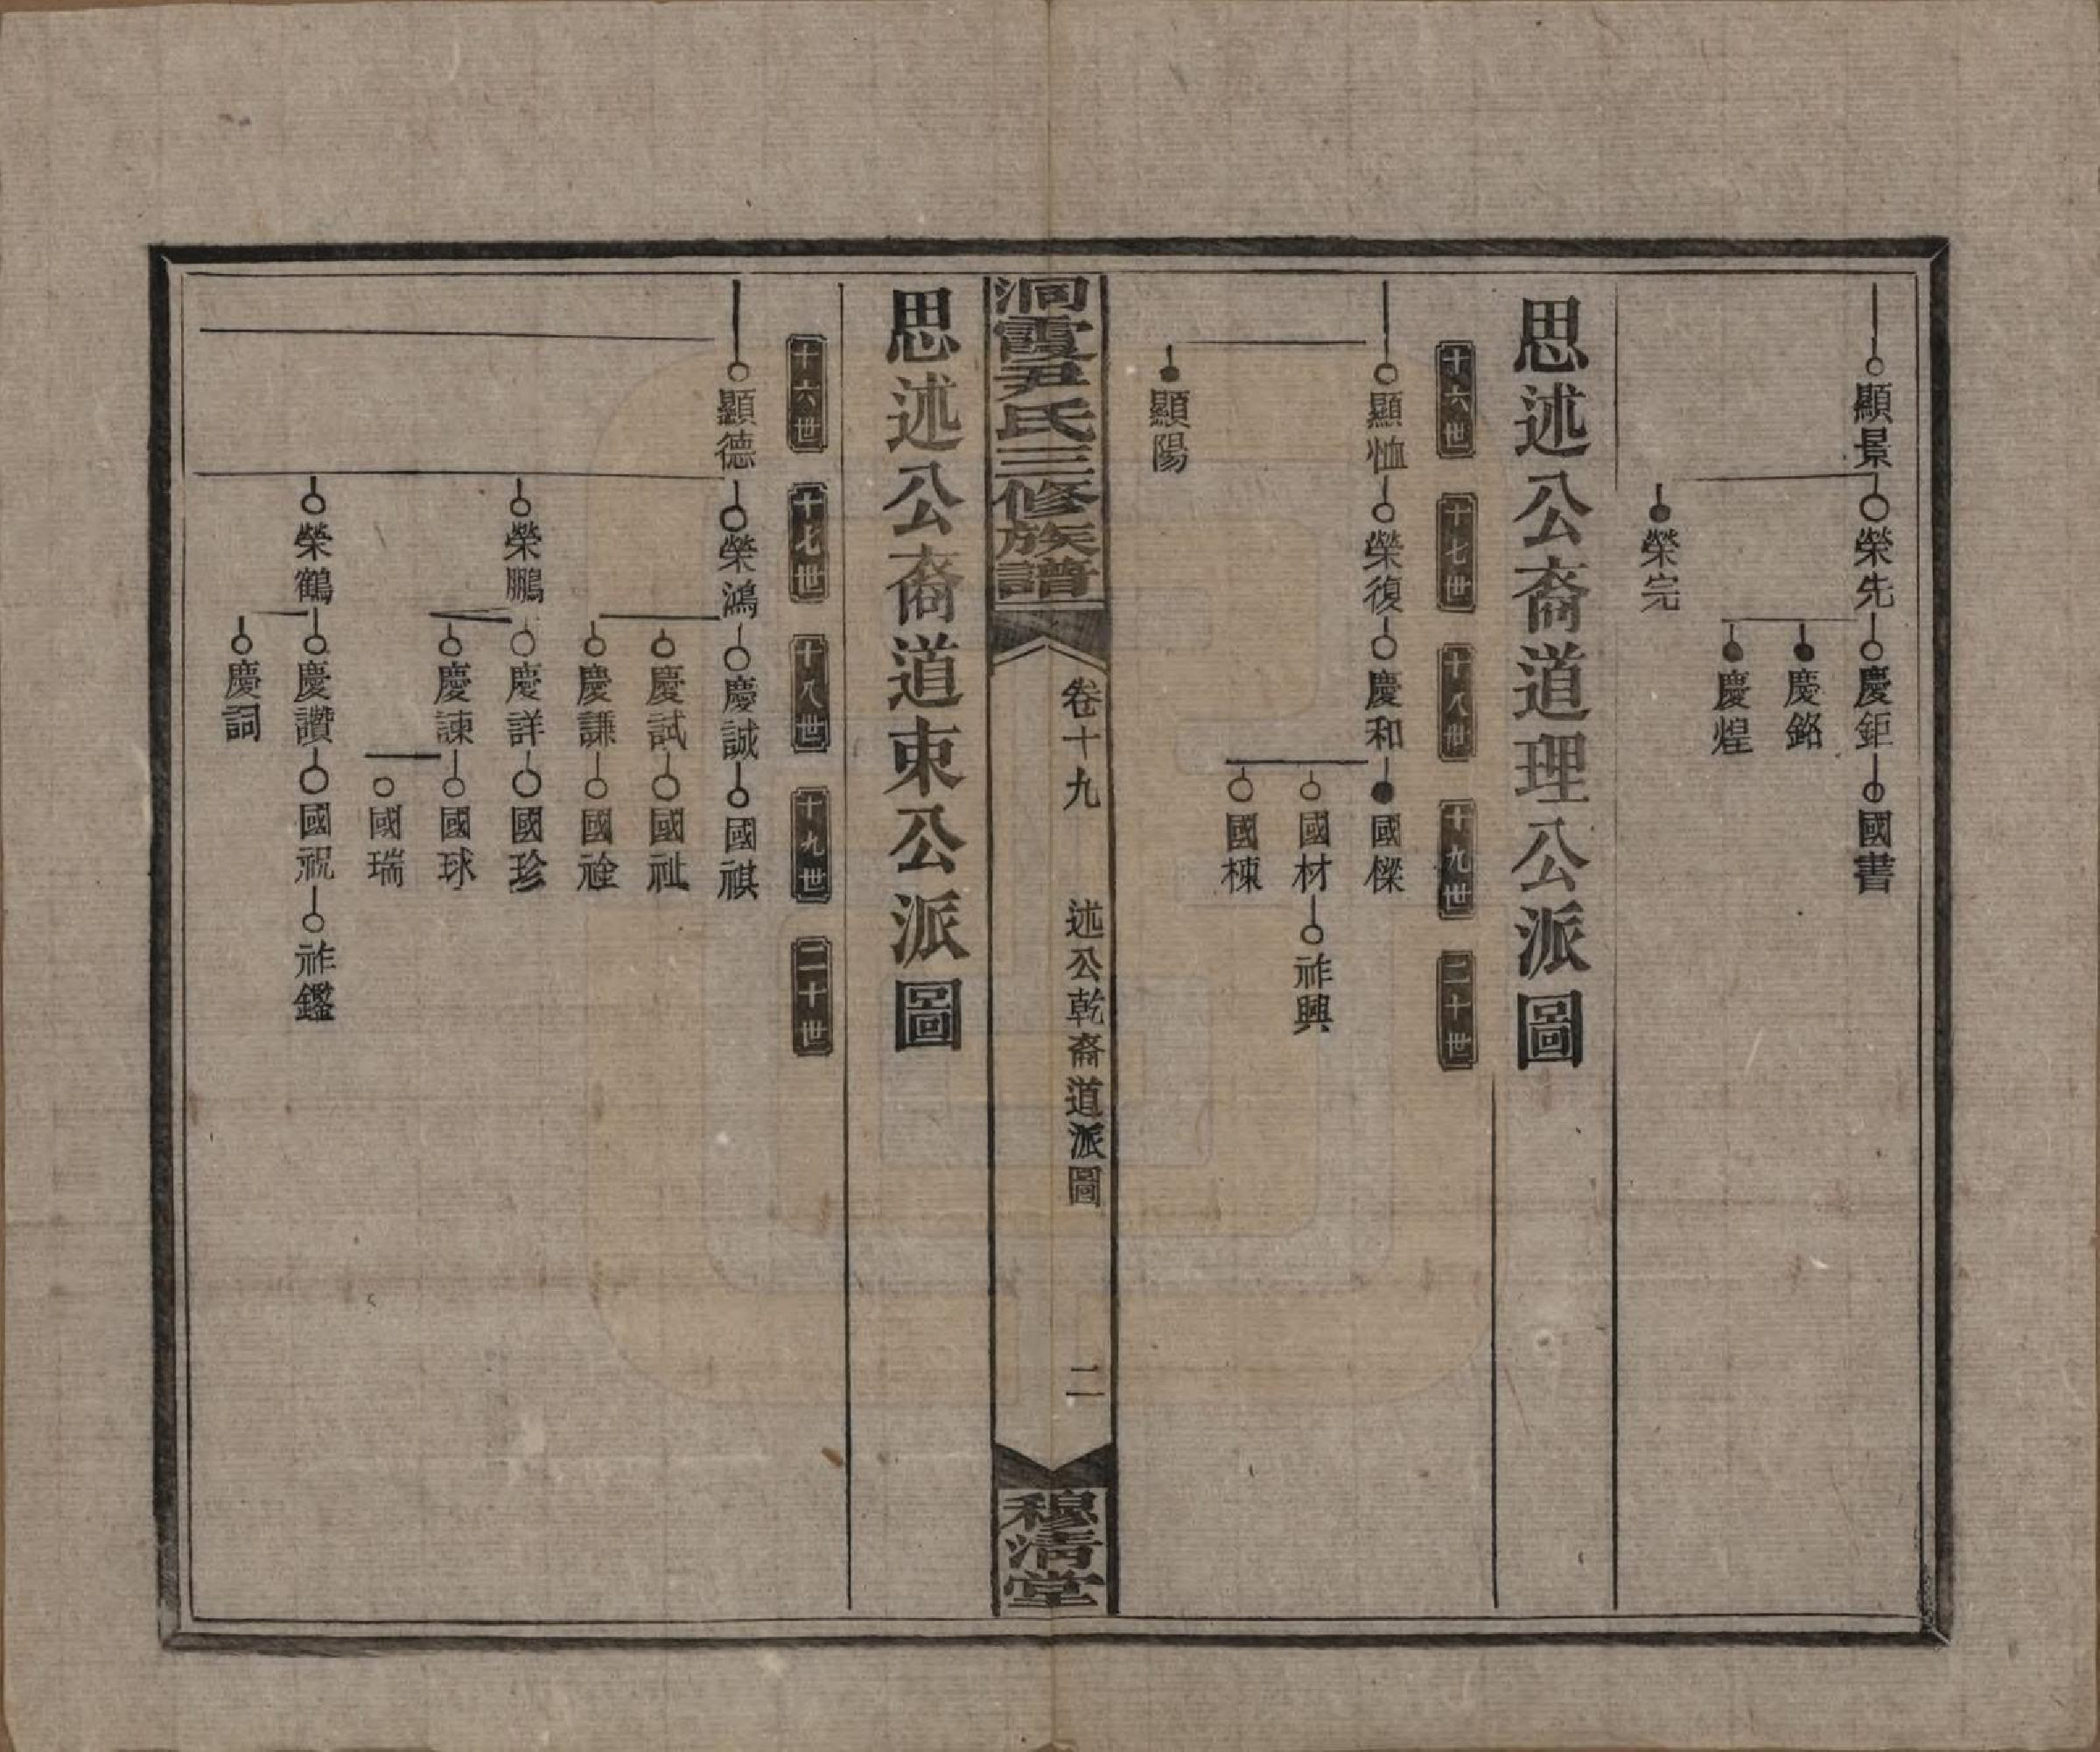 顯景
榮先
慶鉅
國書
慶銘
慶煌
榮完
思述公裔道理公派圖
十六世
十七世
十八世
十九世
二十世
顯恤
榮復
慶和
國樑
國材
祚興
國棟
顯陽
洞霞尹氏三修族譜
卷十九
述公乾裔道派圖
二
穆清堂
思述公裔道東公派圖
十六世
十七世
十八世
十九世
二十世
顯德
榮鴻
慶誠
國祺
慶試
國祉
慶謙
國祿
榮鵬
慶詳
國珍
慶諫
國球
國瑞
榮鶴
慶讚
國祝
祚鑑
慶詞